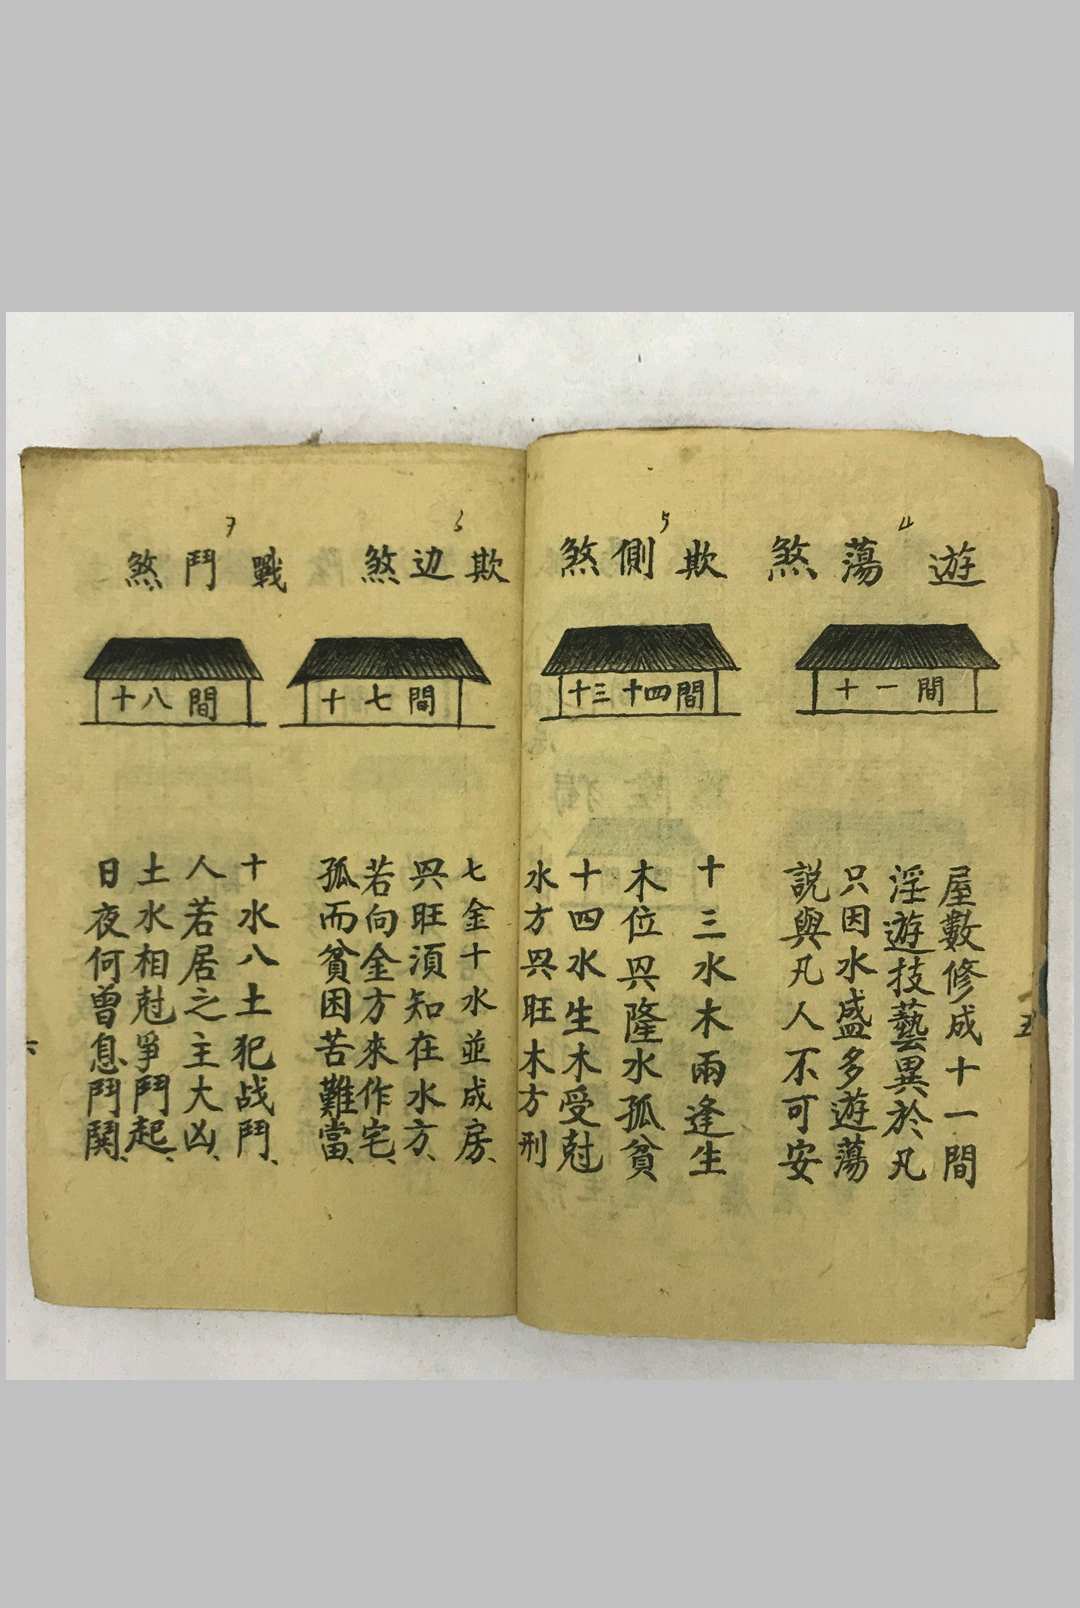 4
遊蕩煞
十一間
屋數修成十一間
淫遊技藝異於凡
只因水盛多遊蕩
説與凡人不可安
5
欺側煞
十三十四間
十三水木兩逢生
木位興隆水孤貧
十四水生木受尅
水方興旺木方刑
五
6
欺边煞
十七間
七金十水並成房
興旺須知在水方
若向金方來作宅
孤而貧困苦難當
7
戰鬥煞
十八間
十水八土犯战鬥
人若居之主大凶
土水相尅爭鬥起
日夜何曾息鬥鬨
六